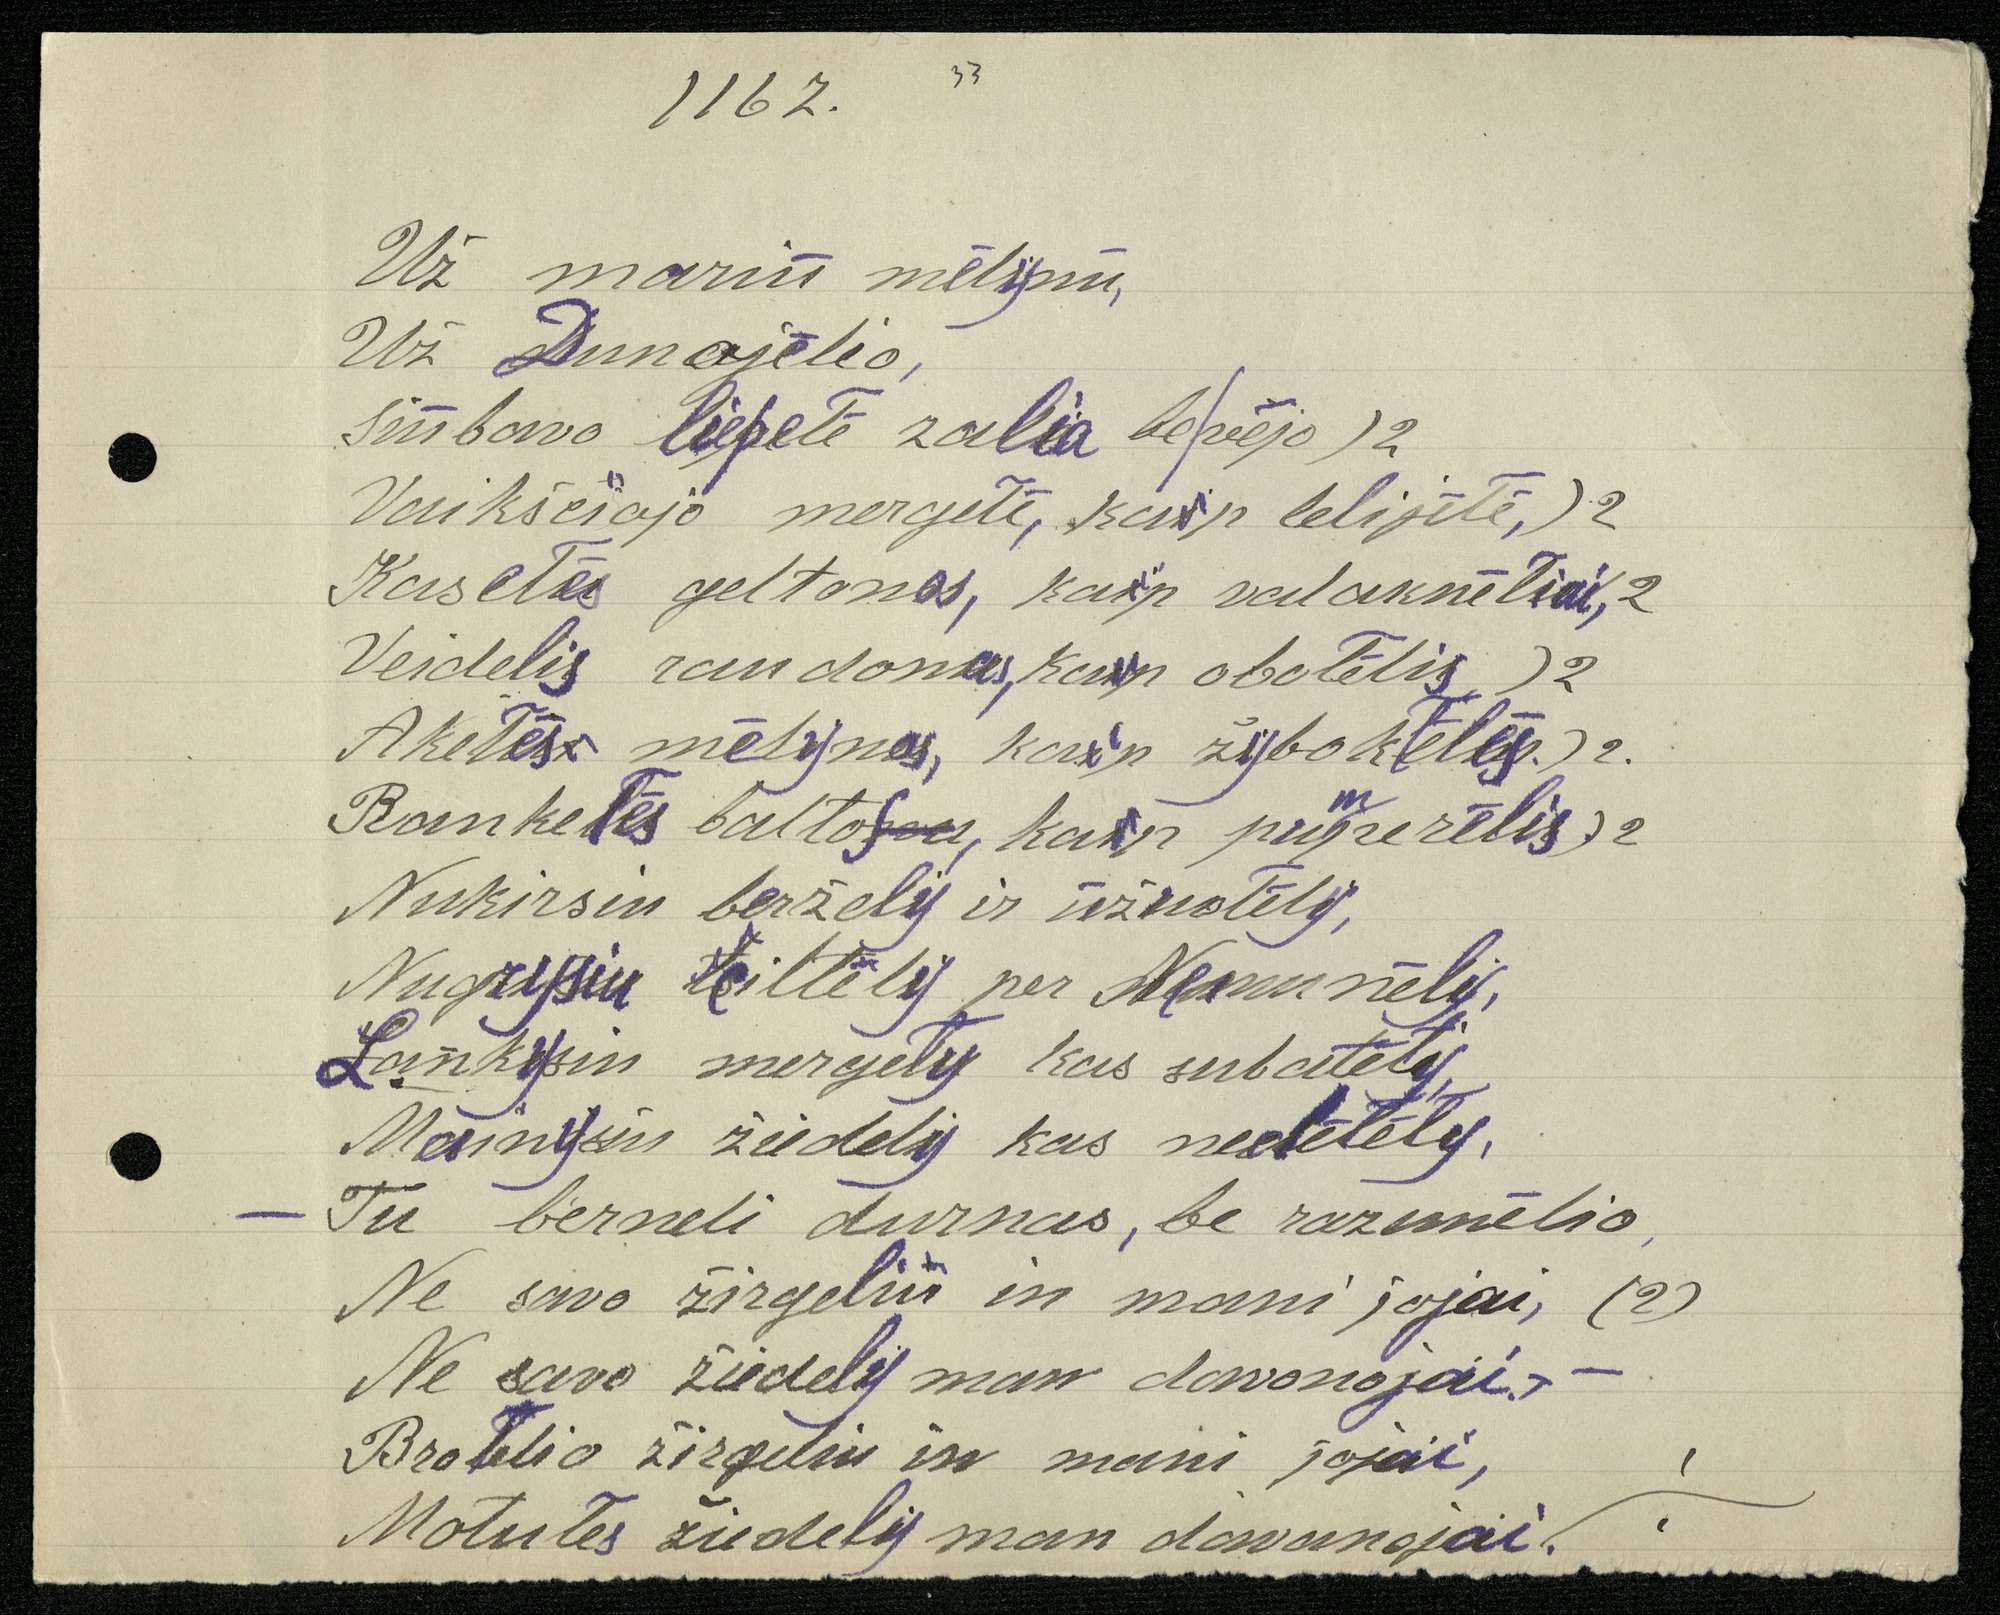 1162. 33
Už mariū mēlynū,
Už Dunojēlio,
siūbavo liepetē zalia be vējo )2
Vaikščiojo mergetē, kaip lelijētē,) 2
Kasetēs geltonos, kaip valaknēliai, 2
Veidelis raudonas, kaip obolēlis )2
Aketēs mēlynos, kaip žybokēlēs.) 2.
Ranketēs baltos, kaip pumperēlis )2
Nukirsiu berželį ir ūžuolēlį,
Nugrysiu tiltēlį per Nemunēlį,
Lankysiu mergelį kas subatēlį,
Mainysiu žiedelį kas nedēlēlį,
— Tu berneli durnas, be razumēlio,
Ne savo žirgeliū in mani jojai, (2)
Ne savo žiedelį man dovonojai. —
Brolelio žirgeliu in mani jojai,
Motutēs žiedelį man dovanojai.